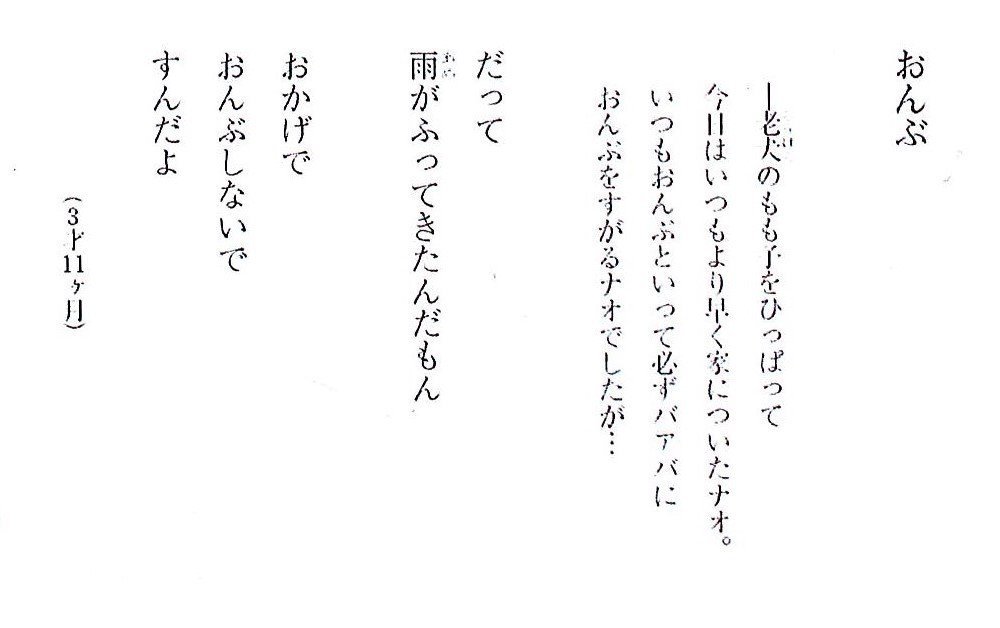 おんぶ
―老犬のもも子をひっぱって
今日はいつもより早く家についたナオ。
いつもおんぶといって必ずバアバに
おんぶをすがるナオでしたが…
だって
雨がふってきたんだもん
おかげで
おんぶしないで
すんだよ
(3才11ヶ月)